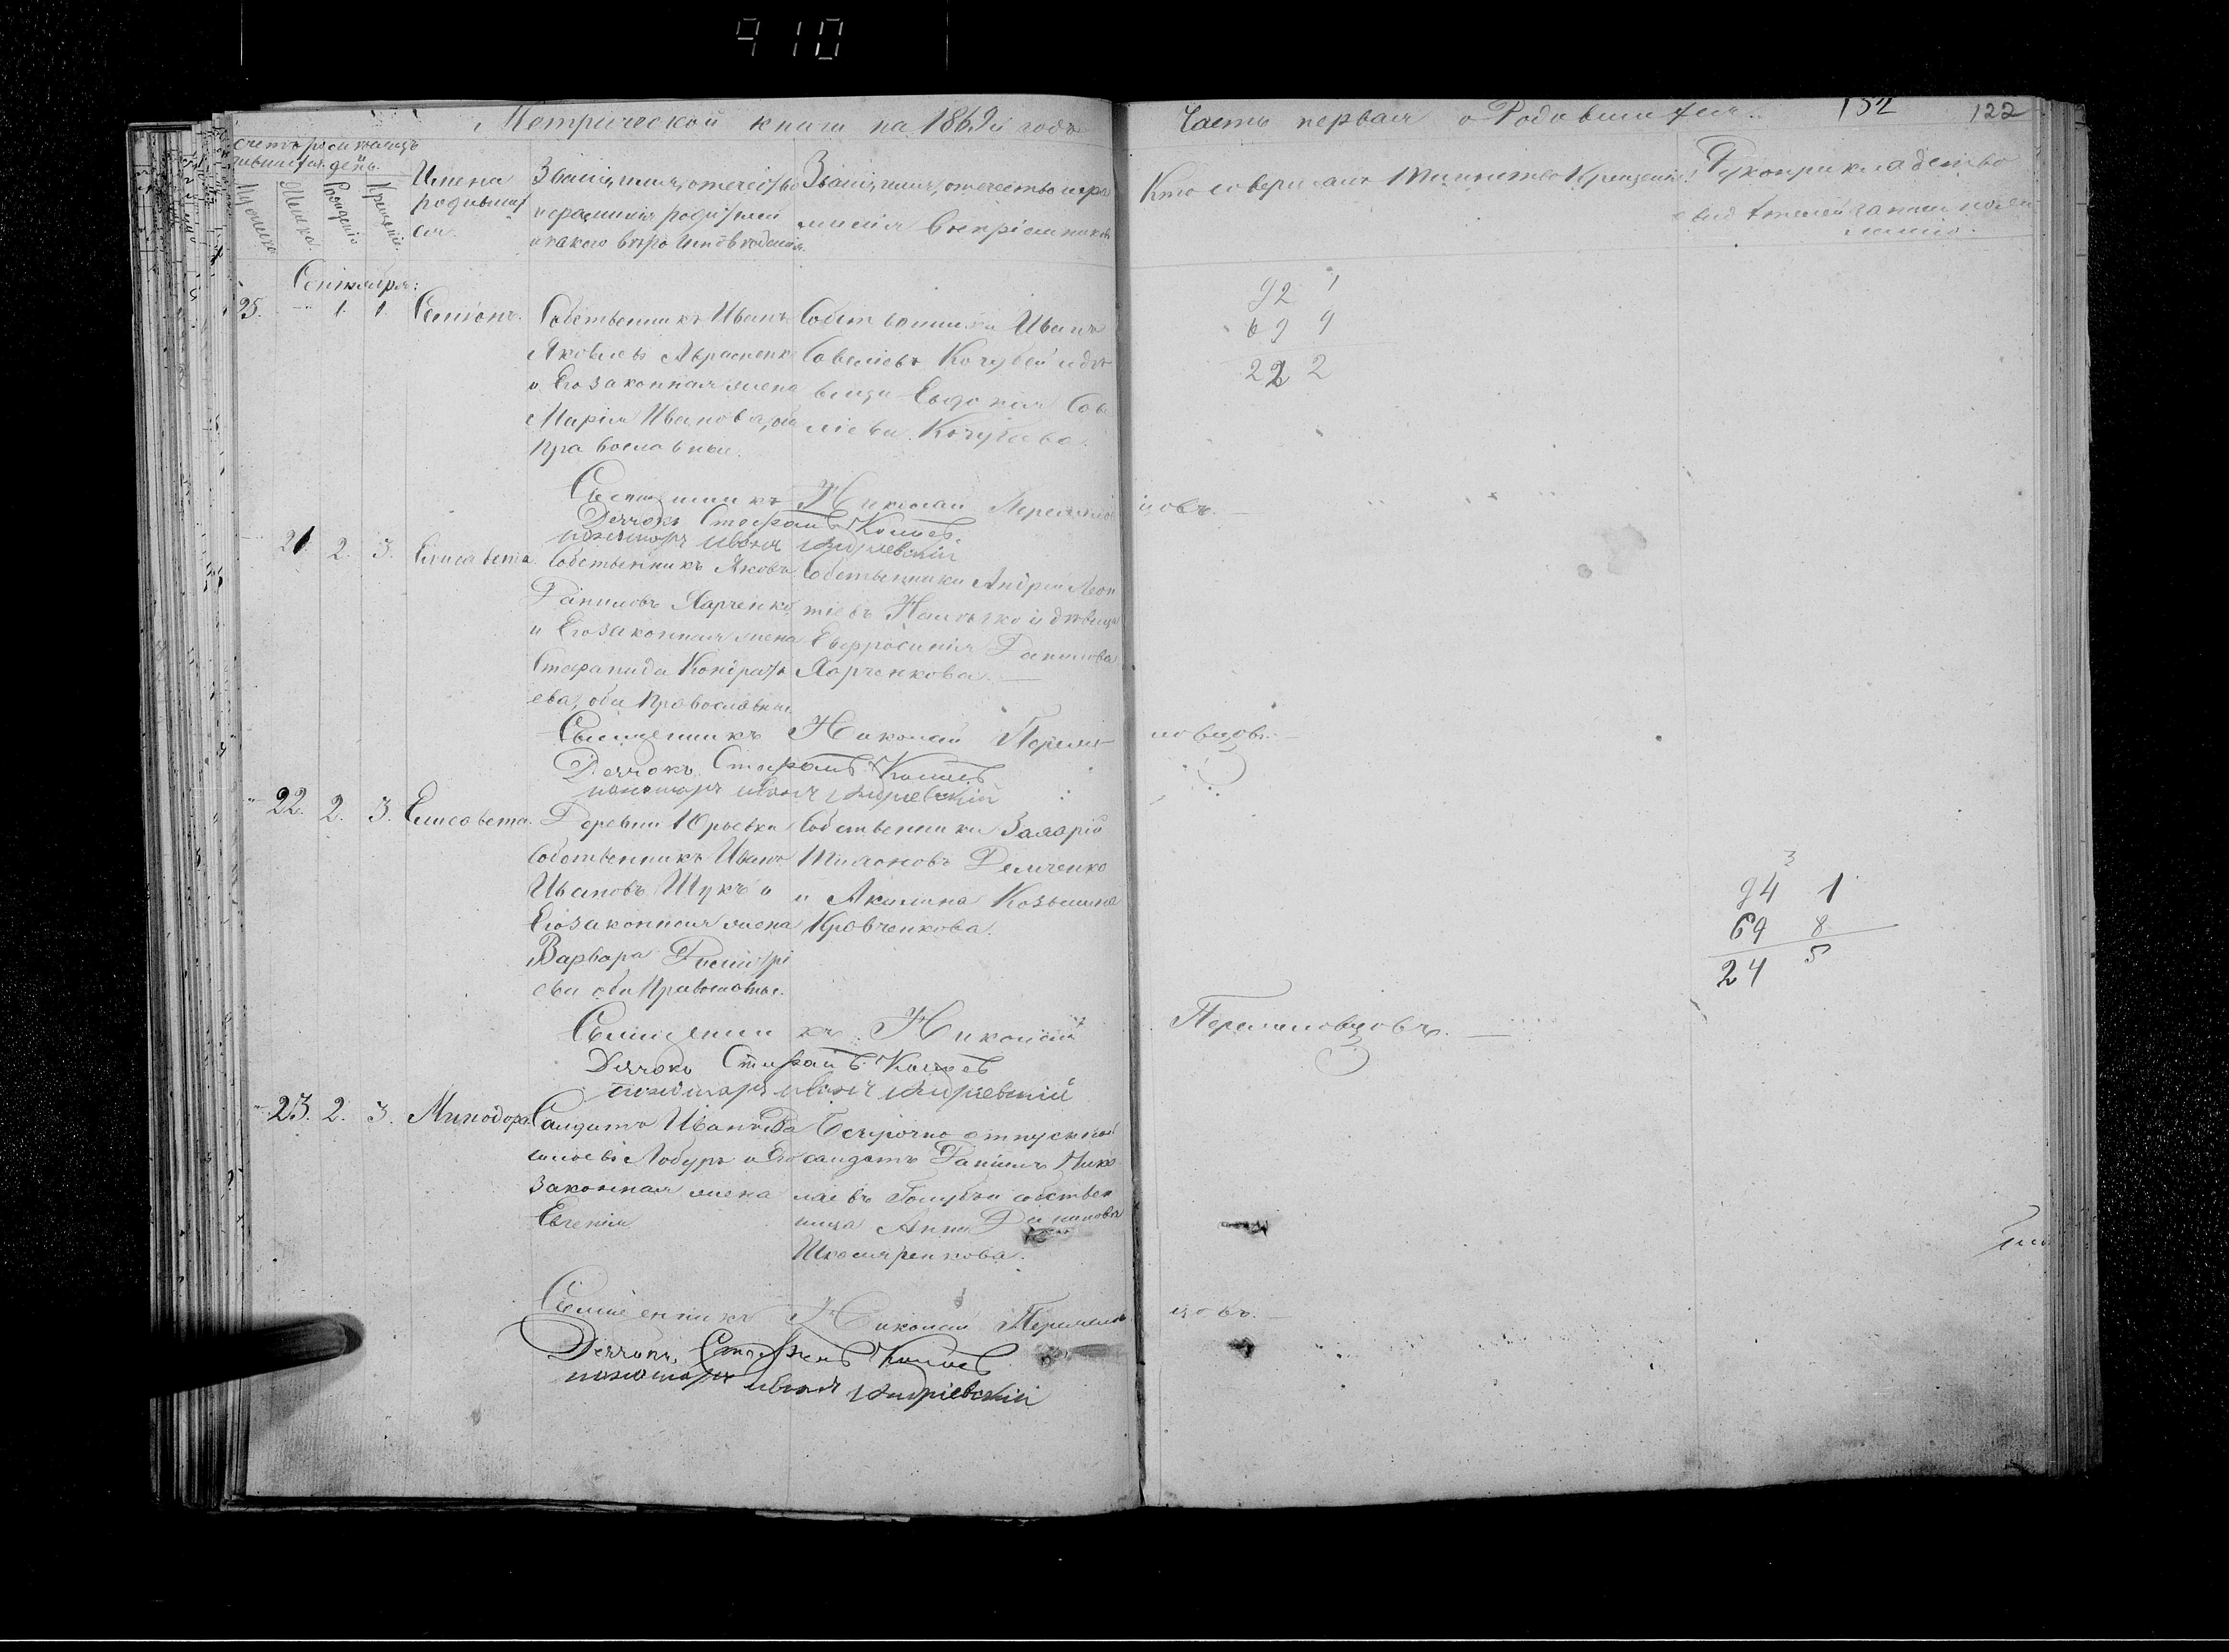 910
Метрической книги на 1869й годъ
Часть первая о Родившихся.
132
122
Мужска
Женска
Рожденiе
Крещенiе
Имена
родивших
ся.
Званiе, имя, отечество
и фамилiя родителей
и какого вѣроисповѣданiя.
Званiе, имя, отечество и фа
милiя воспрiемниковъ
Кто совершалъ Таинство Крещенiя
Рукоприкладство
Сентября:
25. 1. 1. Семiонъ.
Собственникъ Иванъ
Яковлевъ
и Его законная жена
Марiя Иванова, оба
православные.
Собственникъ Иванъ
Савелiевъ Кочубей и дѣ
вица Евдокiя Саве
лiева Кочубеева.
92 1
69 9
22 2
Священникъ Николай Перемиловцовъ.
Дячокъ Стефанъ
пономарь Иванъ
21. 2. 3. Елисавета.
Собственникъ Яковъ
Данiиловъ Харченко
и Его законная жена
Стефанида Кондрать
ева, оба Православные.
Собственникъ Андрей Леон
тiевъ и дѣвица
Евфросинiя Данилова
Харченкова.
Священникъ Николай Перемиловцовъ.
Дячокъ Стефанъ
пономарь Иванъ
22. 2. 3. Елисавета.
Деревни Юрьевки
Собственникъ Иванъ
Ивановъ Щукъ и
Его законная жена
Варвара Димитрi
ева оба Православные.
Собственникъ Захарiй
Тихоновъ Демченко
и Акилина Козьмина
Кравченкова.
3
94 1
69 8
24 5
Священникъ Николай Перемиловцовъ.
Дячокъ Стефанъ
пономарь Иванъ
23. 2. 3. Минодора.
Солдатъ Иванъ Да
ниловъ и Его
законная жена
Евгенiя
Безсрочно отпускной
солдатъ Данiилъ Нико
лаевъ Голубъ и собствен
ница Анна Данилова
Школяренкова.
Священникъ Николай Перемиловцовъ.
Дячокъ Стефанъ
пономарь Иванъ